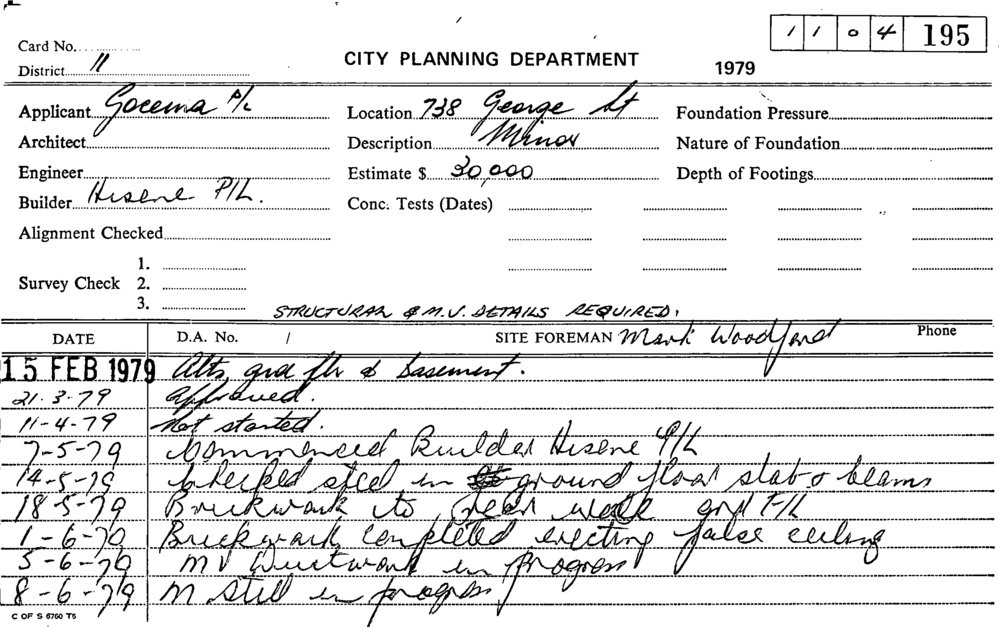 1 1 0 4 195
Card No.
CITY PLANNING DEPARTMENT
District 11
1979
Applicant Gocema P/L
Location 738 George St
Foundation Pressure
Architect
Description Minor
Nature of Foundation
Engineer
Estimate $ 30,000
Depth of Footings
Builder Hisene P/L.
Conc. Tests (Dates)
Alignment Checked
1.
Survey Check 2.
3.
STRUCTURAL & M.V. DETAILS REQUIRED.
DATE D.A. No. / SITE FOREMAN Mark Woodford Phone
15 FEB 1979 Alts, grd flr & basement.
21.3.79 Approved.
11-4-79 Not started.
7-5-79 Commenced Builder Hisene P/L
14-5-79 Checked steel in ground floor slab & beams
18-5-79 Brickwork to rear wall grd F/L
1-6-79 Brickwork completed erecting false ceiling
5-6-79 MV Ductwork in progress
8-6-79 M still in progress
C OF S 6760 T5